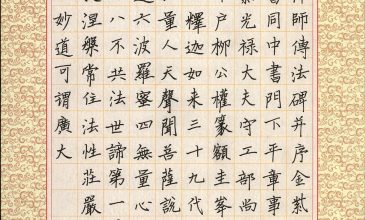 師傳法碑并序金紫
書同中書門下平章事
光祿大夫守工部尚
户柳公權篆額圭峯
釋迦如來三十九代
量人天聲聞菩薩說
六波羅蜜四無量心
八不共法世諦第一
涅槃常住法性莊嚴
妙道可謂廣大